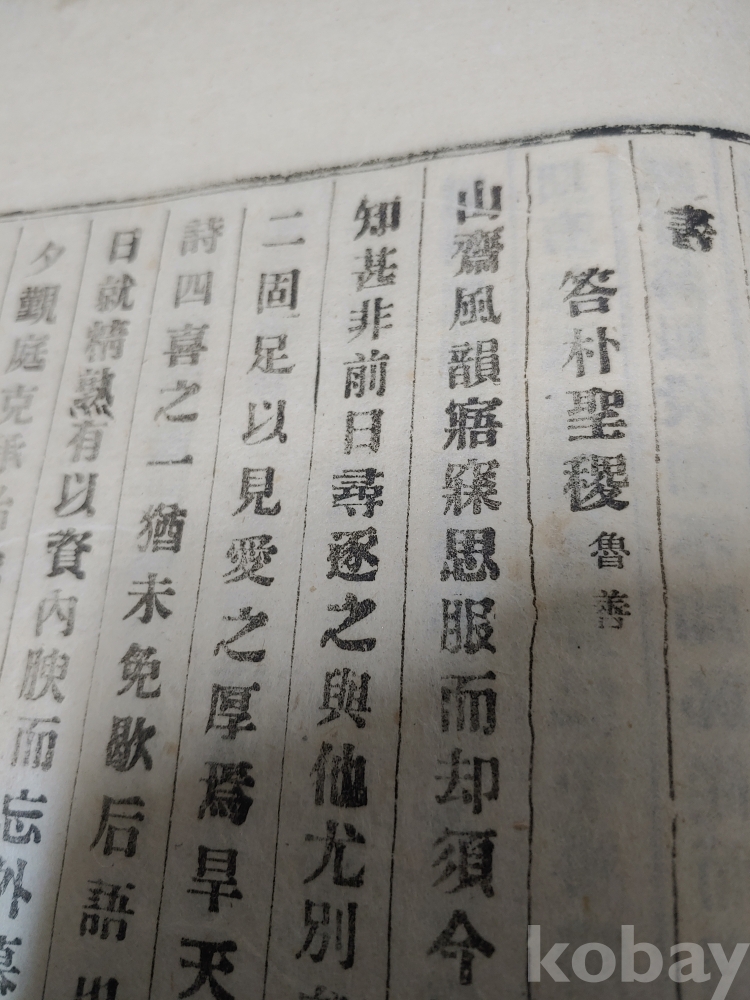 書
答朴聖稷 魯善
山齋風韻寤寐思服而却須今
知甚非前日尋逐之與他尤別
二固足以見愛之厚焉旱天
詩四喜之一猶未免歇后語
日就精熟有以資內腴而忘外慕
夕觀庭克承
kobay